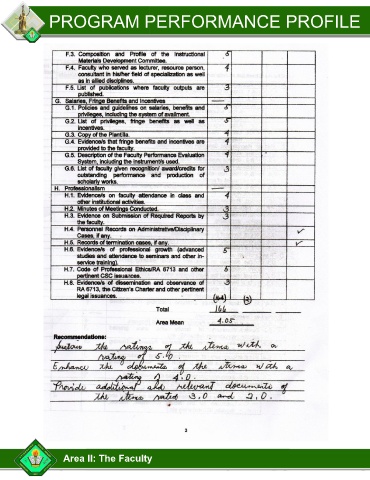 PROGRAM PERFORMANCE PROFILE
F.3. Composition and Profile of the Instructional 5
Materials Development Committee.
F.4. Faculty who served as lecturer, resource person, 4
consultant in his/her field of specialization as well
as in allied disciplines.
F.5. List of publications where faculty outputs are 3
published.
G. Salaries, Fringe Benefits and Incentives —
G.1. Policies and guidelines on salaries, benefits and 5
privileges, including the system of availment.
G.2. List of privileges, fringe benefits as well as 5
incentives.
G.3. Copy of the Plantilla. 4
G.4. Evidence/s that fringe benefits and incentives are 4
provided to the faculty.
G.5. Description of the Faculty Performance Evaluation 4
System, including the instrument/s used.
G.6. List of faculty given recognition/ award/credits for 3
outstanding performance and production of
scholarly works.
H. Professionalism —
H.1. Evidence/s on faculty attendance in class and 4
other institutional activities.
H.2. Minutes of Meetings Conducted. 3
H.3. Evidence on Submission of Required Reports by 3
the faculty.
H.4. Personnel Records on Administrative/Disciplinary ✓
Cases, if any.
H.5. Records of termination cases, if any. ✓
H.6. Evidence/s of professional growth (advanced 5
studies and attendance to seminars and other in-
service training).
H.7. Code of Professional Ethics/RA 6713 and other 5
pertinent CSC issuances.
H.8. Evidence/s of dissemination and observance of 3
RA 6713, the Citizen's Charter and other pertinent
legal issuances.
Total 166
Area Mean 4.05
Recommendations:
the ratings of the items with a
rating of 5.0.
Enhance the documents of the items with a
rating of 4.0.
Provide additional and relevant documents of
the items rated 3.0 and 2.0.
3
Area II: The Faculty